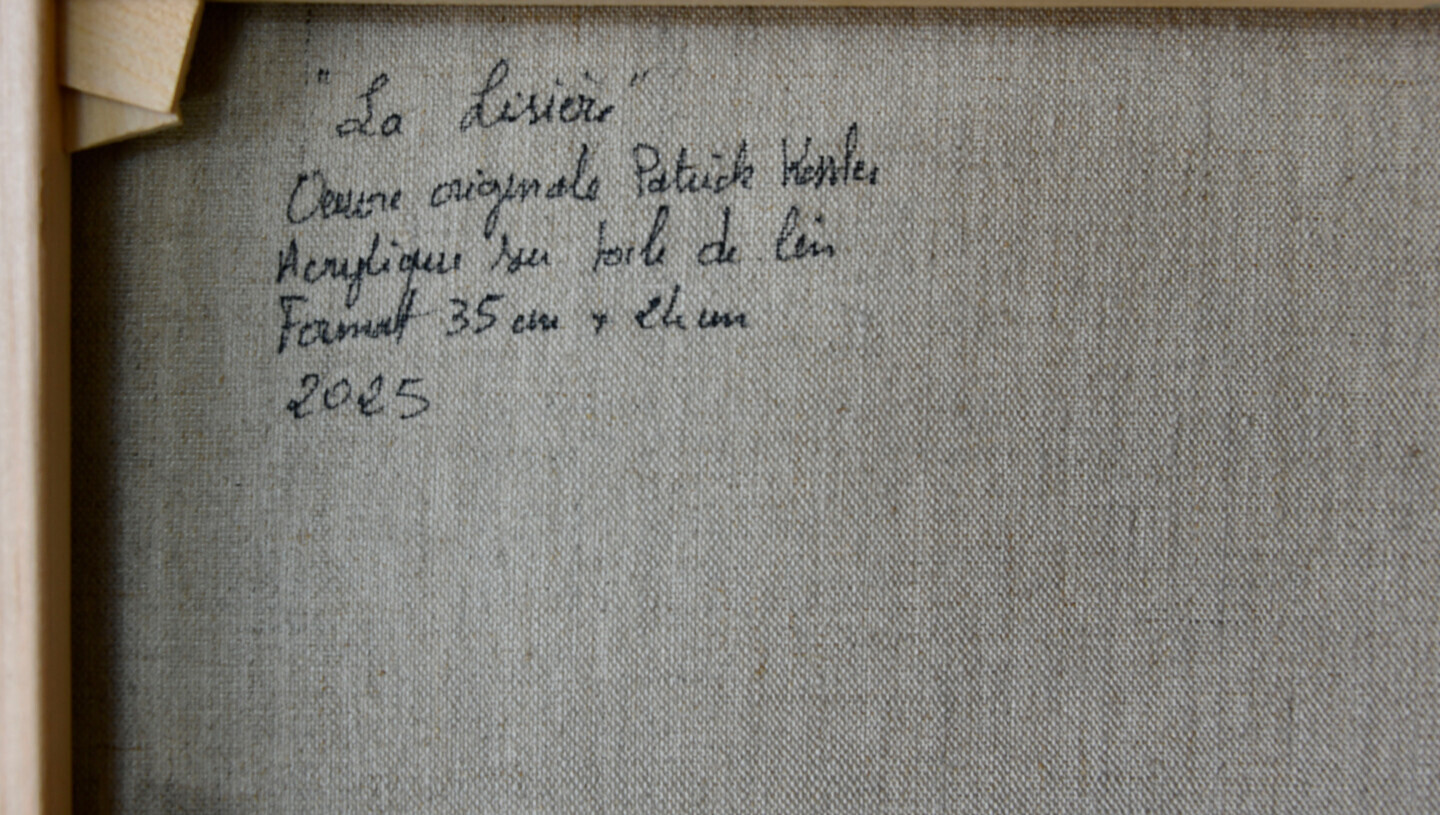 "La Lisière"
Oeuvre originale Patrick Kessler
Acrylique sur toile de lin
Format 35 cm x 24 cm
2025